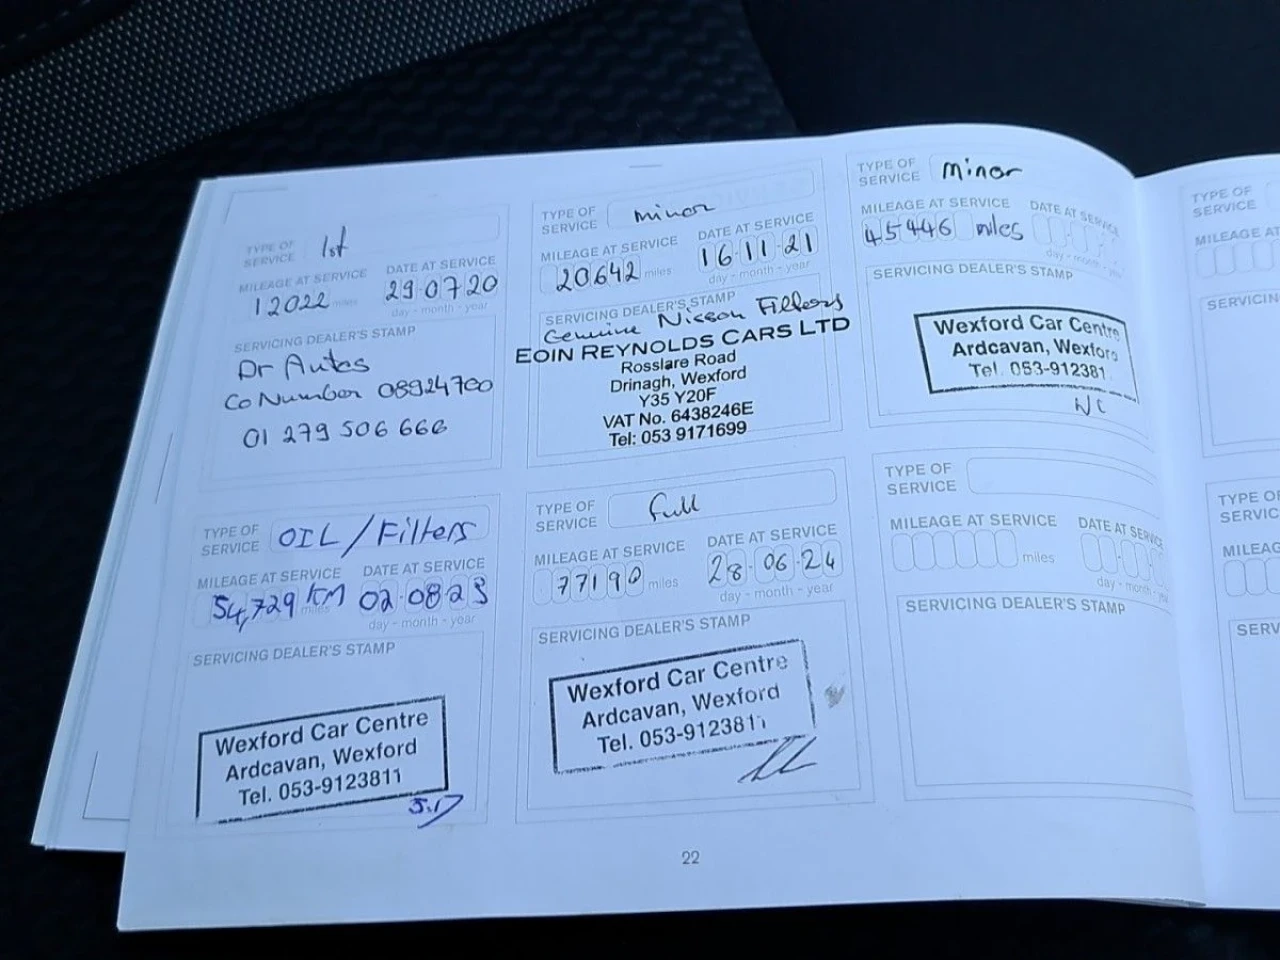 TYPE OF SERVICE 1st
MILEAGE AT SERVICE DATE AT SERVICE
12022 miles 29 07 20
day - month - year
SERVICING DEALER'S STAMP
Dr Autos
Co Number 08924700
01 279 506 666
TYPE OF SERVICE minor
MILEAGE AT SERVICE DATE AT SERVICE
20642 miles 16 11 21
day - month - year
SERVICING DEALER'S STAMP
Genuine Nissan Filters
EOIN REYNOLDS CARS LTD
Rosslare Road
Drinagh, Wexford
Y35 Y20F
VAT No. 6438246E
Tel: 053 9171699
TYPE OF SERVICE Minor
MILEAGE AT SERVICE DATE AT SERVICE
45446 miles
day - month - ye
SERVICING DEALER'S STAMP
Wexford Car Centre
Ardcavan, Wexford
Tel. 053-912381
NC
TYPE OF SERVICE OIL/Filters
MILEAGE AT SERVICE DATE AT SERVICE
54,729 KM miles 02 08 23
day - month - year
SERVICING DEALER'S STAMP
Wexford Car Centre
Ardcavan, Wexford
Tel. 053-9123811
TYPE OF SERVICE Full
MILEAGE AT SERVICE DATE AT SERVICE
77190 miles 28 06 24
day - month - year
SERVICING DEALER'S STAMP
Wexford Car Centre
Ardcavan, Wexford
Tel. 053-9123811
TYPE OF SERVICE
MILEAGE AT SERVICE DATE AT SERVICE
miles
day - month - ye
SERVICING DEALER'S STAMP
22
TYPE OF SERVICE
MILEAGE AT
SERVICIN
TYPE O
SERVIC
MILEAG
SERV